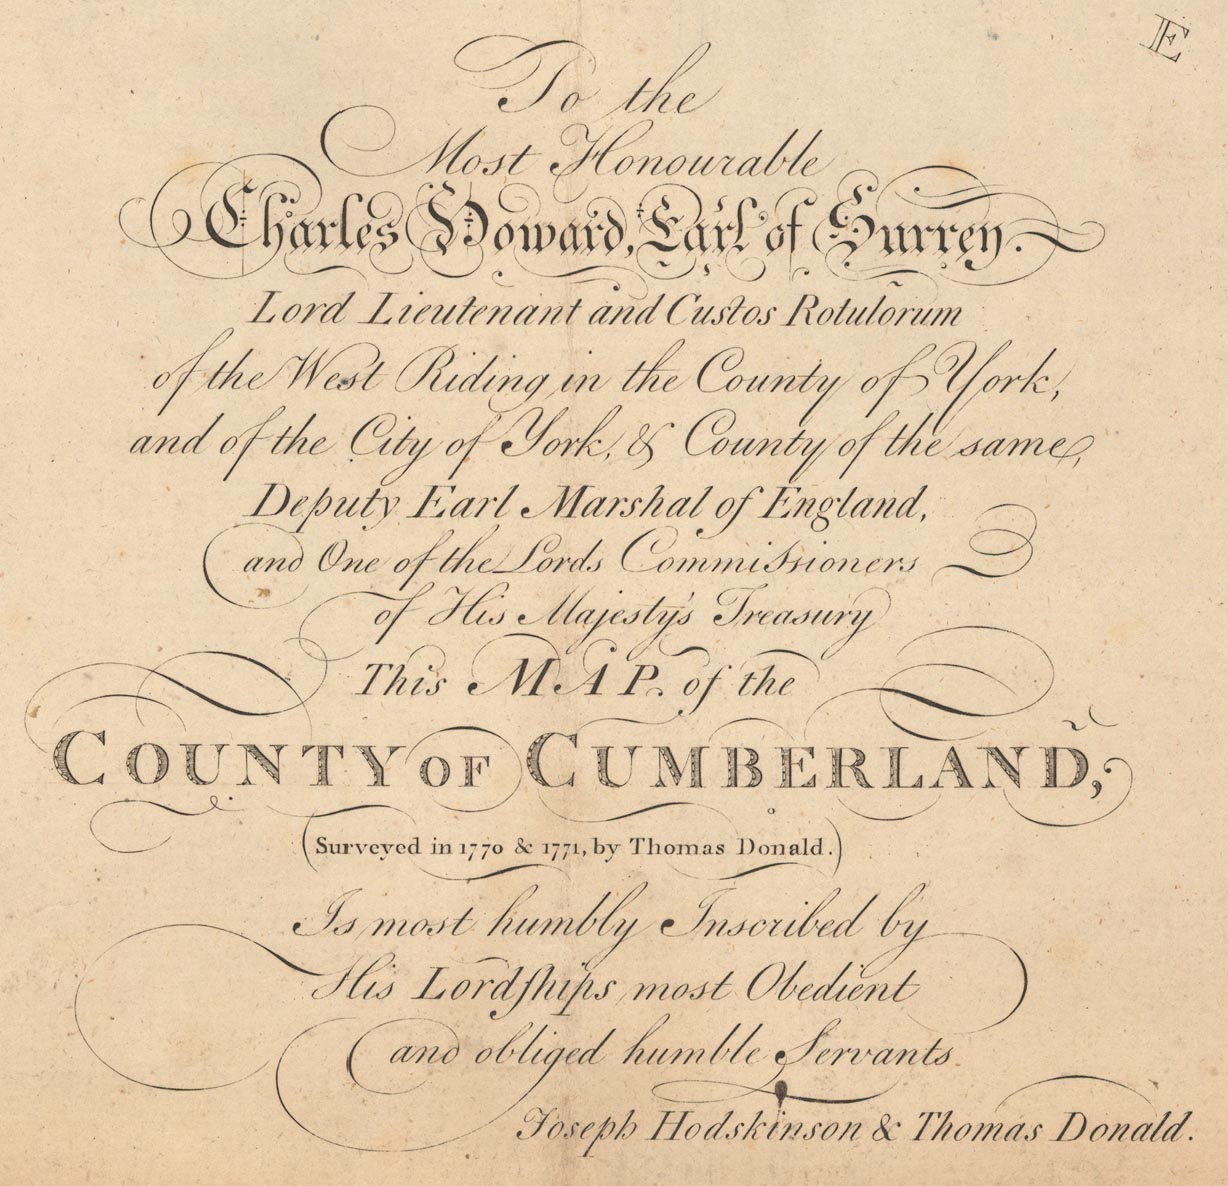 E
To the
Most Honourable
Charles Howard, Earl of Surrey.
Lord Lieutenant and Custos Rotulorum
of the West Riding in the County of York,
and of the City of York, & County of the same,
Deputy Earl Marshal of England,
and One of the Lords Commissioners
of His Majesty's Treasury
This MAP. of the
COUNTY OF CUMBERLAND,
(Surveyed in 1770 & 1771, by Thomas Donald.)
Is most humbly Inscribed by
His Lordſhips most Obedient
and obliged humble Servants
Joseph Hodskinson & Thomas Donald.